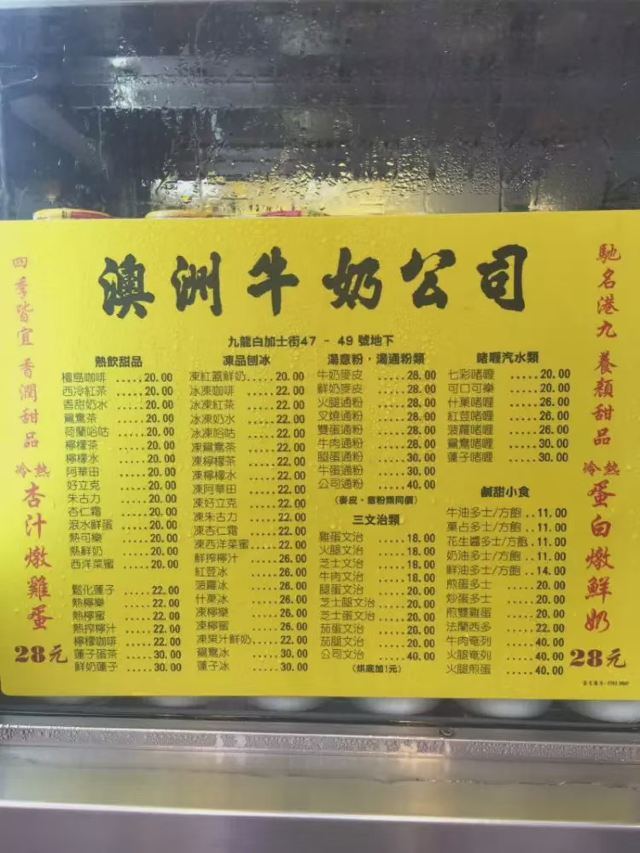 澳洲牛奶公司
九龍白加士街47 - 49 號地下
四季皆宜 香潤甜品
冷熱 杏汁燉雞蛋
28元
熱飲甜品
檀島咖啡 .....20.00
西冷紅茶 .....20.00
香甜奶水 ....20.00
鴛鴦茶 .....20.00
荷蘭哈咕 .....20.00
檸檬茶 .....20.00
檸檬水 .....20.00
阿華田 .....20.00
好立克 .....20.00
朱古力 .....20.00
杏仁霜 .....20.00
滾水鮮蛋 ....20.00
熱可樂 .....20.00
熱鮮奶 .....20.00
西洋菜蜜 ....20.00
鬆化蓮子 ....22.00
熱檸樂 .....22.00
熱檸蜜 .....22.00
熱搾檸汁 ....22.00
檸檬咖啡 ....22.00
蓮子蛋茶 ....30.00
鮮奶蓮子 ....30.00
凍品刨冰
凍紅葢鮮奶.....20.00
冰凍咖啡 .....22.00
冰凍紅茶 .....22.00
冰凍奶水 .....22.00
冰凍哈咕 .....22.00
凍鴛鴦茶 .....22.00
凍檸檬茶 .....22.00
凍檸檬水 .....22.00
凍阿華田 .....22.00
凍好立克 .....22.00
凍朱古力 .....22.00
凍杏仁霜 .....22.00
凍西洋菜蜜....22.00
鮮搾檸汁 .....26.00
紅荳冰 .....26.00
菠蘿冰 .....26.00
什菓冰 .....26.00
凍檸樂 .....26.00
凍檸蜜 .....26.00
凍菓汁鮮奶....22.00
鴛鴦冰 .....30.00
蓮子冰 .....30.00
湯意粉．湯通粉類
牛奶麥皮 .....28.00
鮮奶麥皮 .....28.00
火腿通粉 .....28.00
叉燒通粉 .....28.00
雙蛋通粉 .....28.00
牛肉通粉 .....28.00
腿蛋通粉 .....30.00
牛蛋通粉 .....30.00
公司通粉 .....40.00
(麥皮、意粉類同價)
三文治類
雞蛋文治 .....18.00
火腿文治 .....18.00
芝士文治 .....18.00
牛肉文治 .....18.00
腿蛋文治 .....20.00
芝士腿文治 ....20.00
芝士蛋文治 ....20.00
茄蛋文治 .....20.00
茄腿文治 .....20.00
公司文治 .....40.00
(烘底加1元)
啫喱汽水類
七彩啫喱 .....20.00
可口可樂 .....20.00
什菓啫喱 .....26.00
紅荳啫喱 .....26.00
菠蘿啫喱 .....26.00
鴛鴦啫喱 .....30.00
蓮子啫喱 .....30.00
鹹甜小食
牛油多士/方飽 ..11.00
菓占多士/方飽 ..11.00
花生醬多士/方飽 .11.00
奶油多士/方飽 ..11.00
鮮油多士/方飽 ..14.00
煎蛋多士 .....20.00
炒蛋多士 .....20.00
煎雙雞蛋 .....20.00
法蘭西多 .....22.00
牛肉奄列 .....40.00
火腿奄列 .....40.00
火腿煎蛋 .....40.00
馳名港九 養顏甜品
冷熱 蛋白燉鮮奶
28元